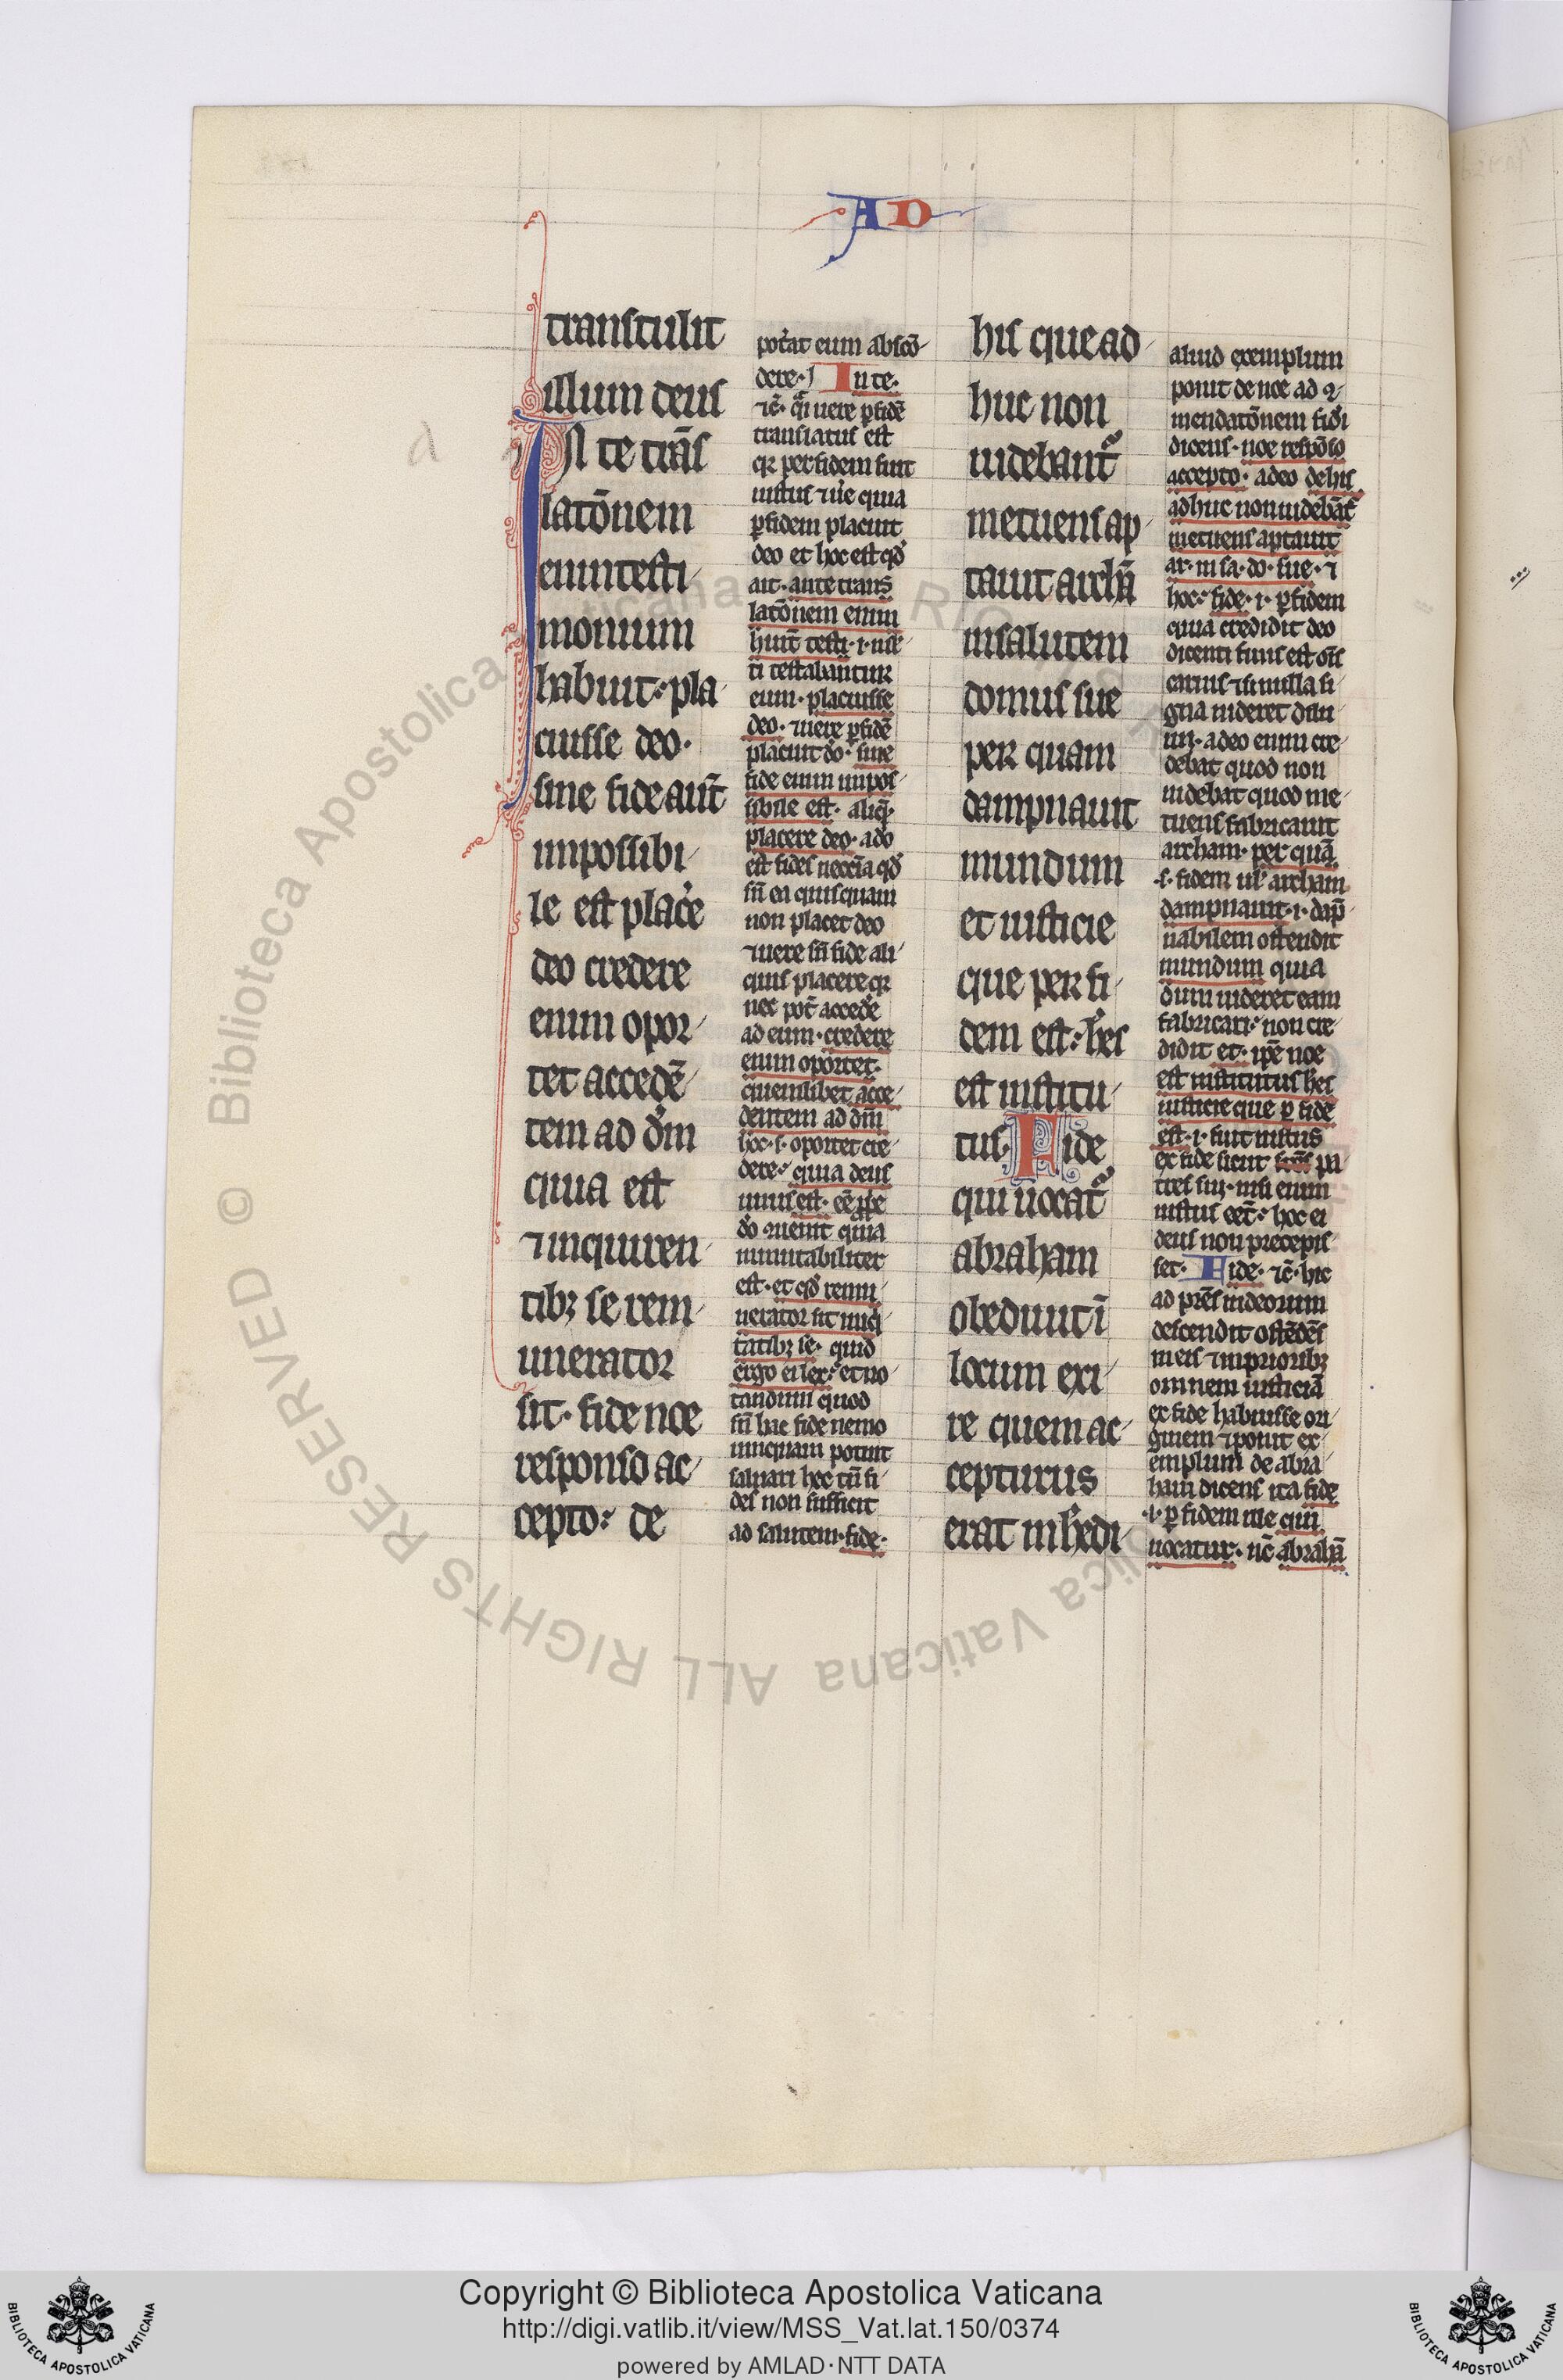 AD
transtulit
illum deus
Iñ te trāſ
latōnem
enim testi
monium
habuit: pla
cuisse deo.
sine fide aut̄
impossibi
le est plac̓e
deo credere
enim opor
tet acceden̄
tem ad dm̄
quia est
⁊ inquiren
tibꝫ se rem
unerator
sit. fide noe
responso ac
cepto: de
pot̓at eum abscō
dere. In te.
⁊c̄. q̄ uere ꝑ fidē
translatus est
qꝛ per fidem fuit
iustus ⁊ ūe quia
ꝑ fidem placuit
deo et hoc est qd̓
ait. ante trans
latōnem enim
hūit testi. i. mi
ti testabantur
eum. placuisse
deo. ⁊ uere ꝑ fidē
placuit do. sine
fide enim impos
sibile est. aliq̄.
placere deo. ado
est fides necc̄ia qd̓
sn̄ ea quisquam
non placet deo
⁊ uere sn̄ fide ali
quis placere qꝛ
nec pot̄ acced̓e
ad eum. credere
enim oportet.
quemlibet acce
dentem ad dm̄
hoc. s. oportet cre
dere: quia deus
unus est.
quia
inmutabiliter
est. et qd̓ remu
nerator sit inq̓
tatibꝫ se. quid
ergo ei
tandum quod
sn̄ hac fide nemo
unquam potuit
saluari hec tn̄ fi
des non sufficit
ad salutem. fide.
his que ad
huc non
uidebant᷑
metuens ap
tauit archā
in salutem
domus sue
per quam
dampnauit
mundum
et iusticie
que per fi
dem est: h̓es
est institu
tus. Fide
qui uocat᷑
abraham
obediuit ī
locum exi
re quem ac
cepturus
erat in h̓edi
aliud exemplum
ponit de noe ad ꝯ
mendatōnem fid̓i
dicens. noe respōso
accepto. adeo de his
adhuc non uidebāt᷑
metuens aptauit
ar. in sa. do. sue. ⁊
hoc: fide. i. ꝑ fidem
quia credidit deo
dicenti finis est oīs
carnis ⁊ si nulla si
gna uideret dilu
uij. adeo enim cre
debat quod non
uidebat quod me
tuens fabricauit
archam. per quā
.s. fidem ul̓ archam
dampnauit. i. dāp
nabilem ostendit
mundum quia
dum uideret eam
fabricari: non cre
didit et. ip̄e noe
est institutus h̓es
iusticie que ꝑ fidē
est. i. fuit iustus
ex fide sicut pa
tres sui. nisi enim
iustus eēt: hoc ei
deus non precepis
set. Fide. ⁊c̄. hic
ad pr̄es iudeorum
descendit ostēdēs
in eis ⁊ in prioribꝫ
omnem iusticiā
ex fide habuisse ori
ginem ⁊ ponit ex
emplum de abra
ham dicens ita fide
.i. ꝑ fidem ille qui
uocatur. nc̄ abrahā
Copyright © Biblioteca Apostolica Vaticana
http://digi.vatlib.it/view/MSS_Vat.lat.150/0374
powered by AMLAD·NTT DATA
BIBLIOTECA APOSTOLICA VATICANA
BIBLIOTECA APOSTOLICA VATICANA